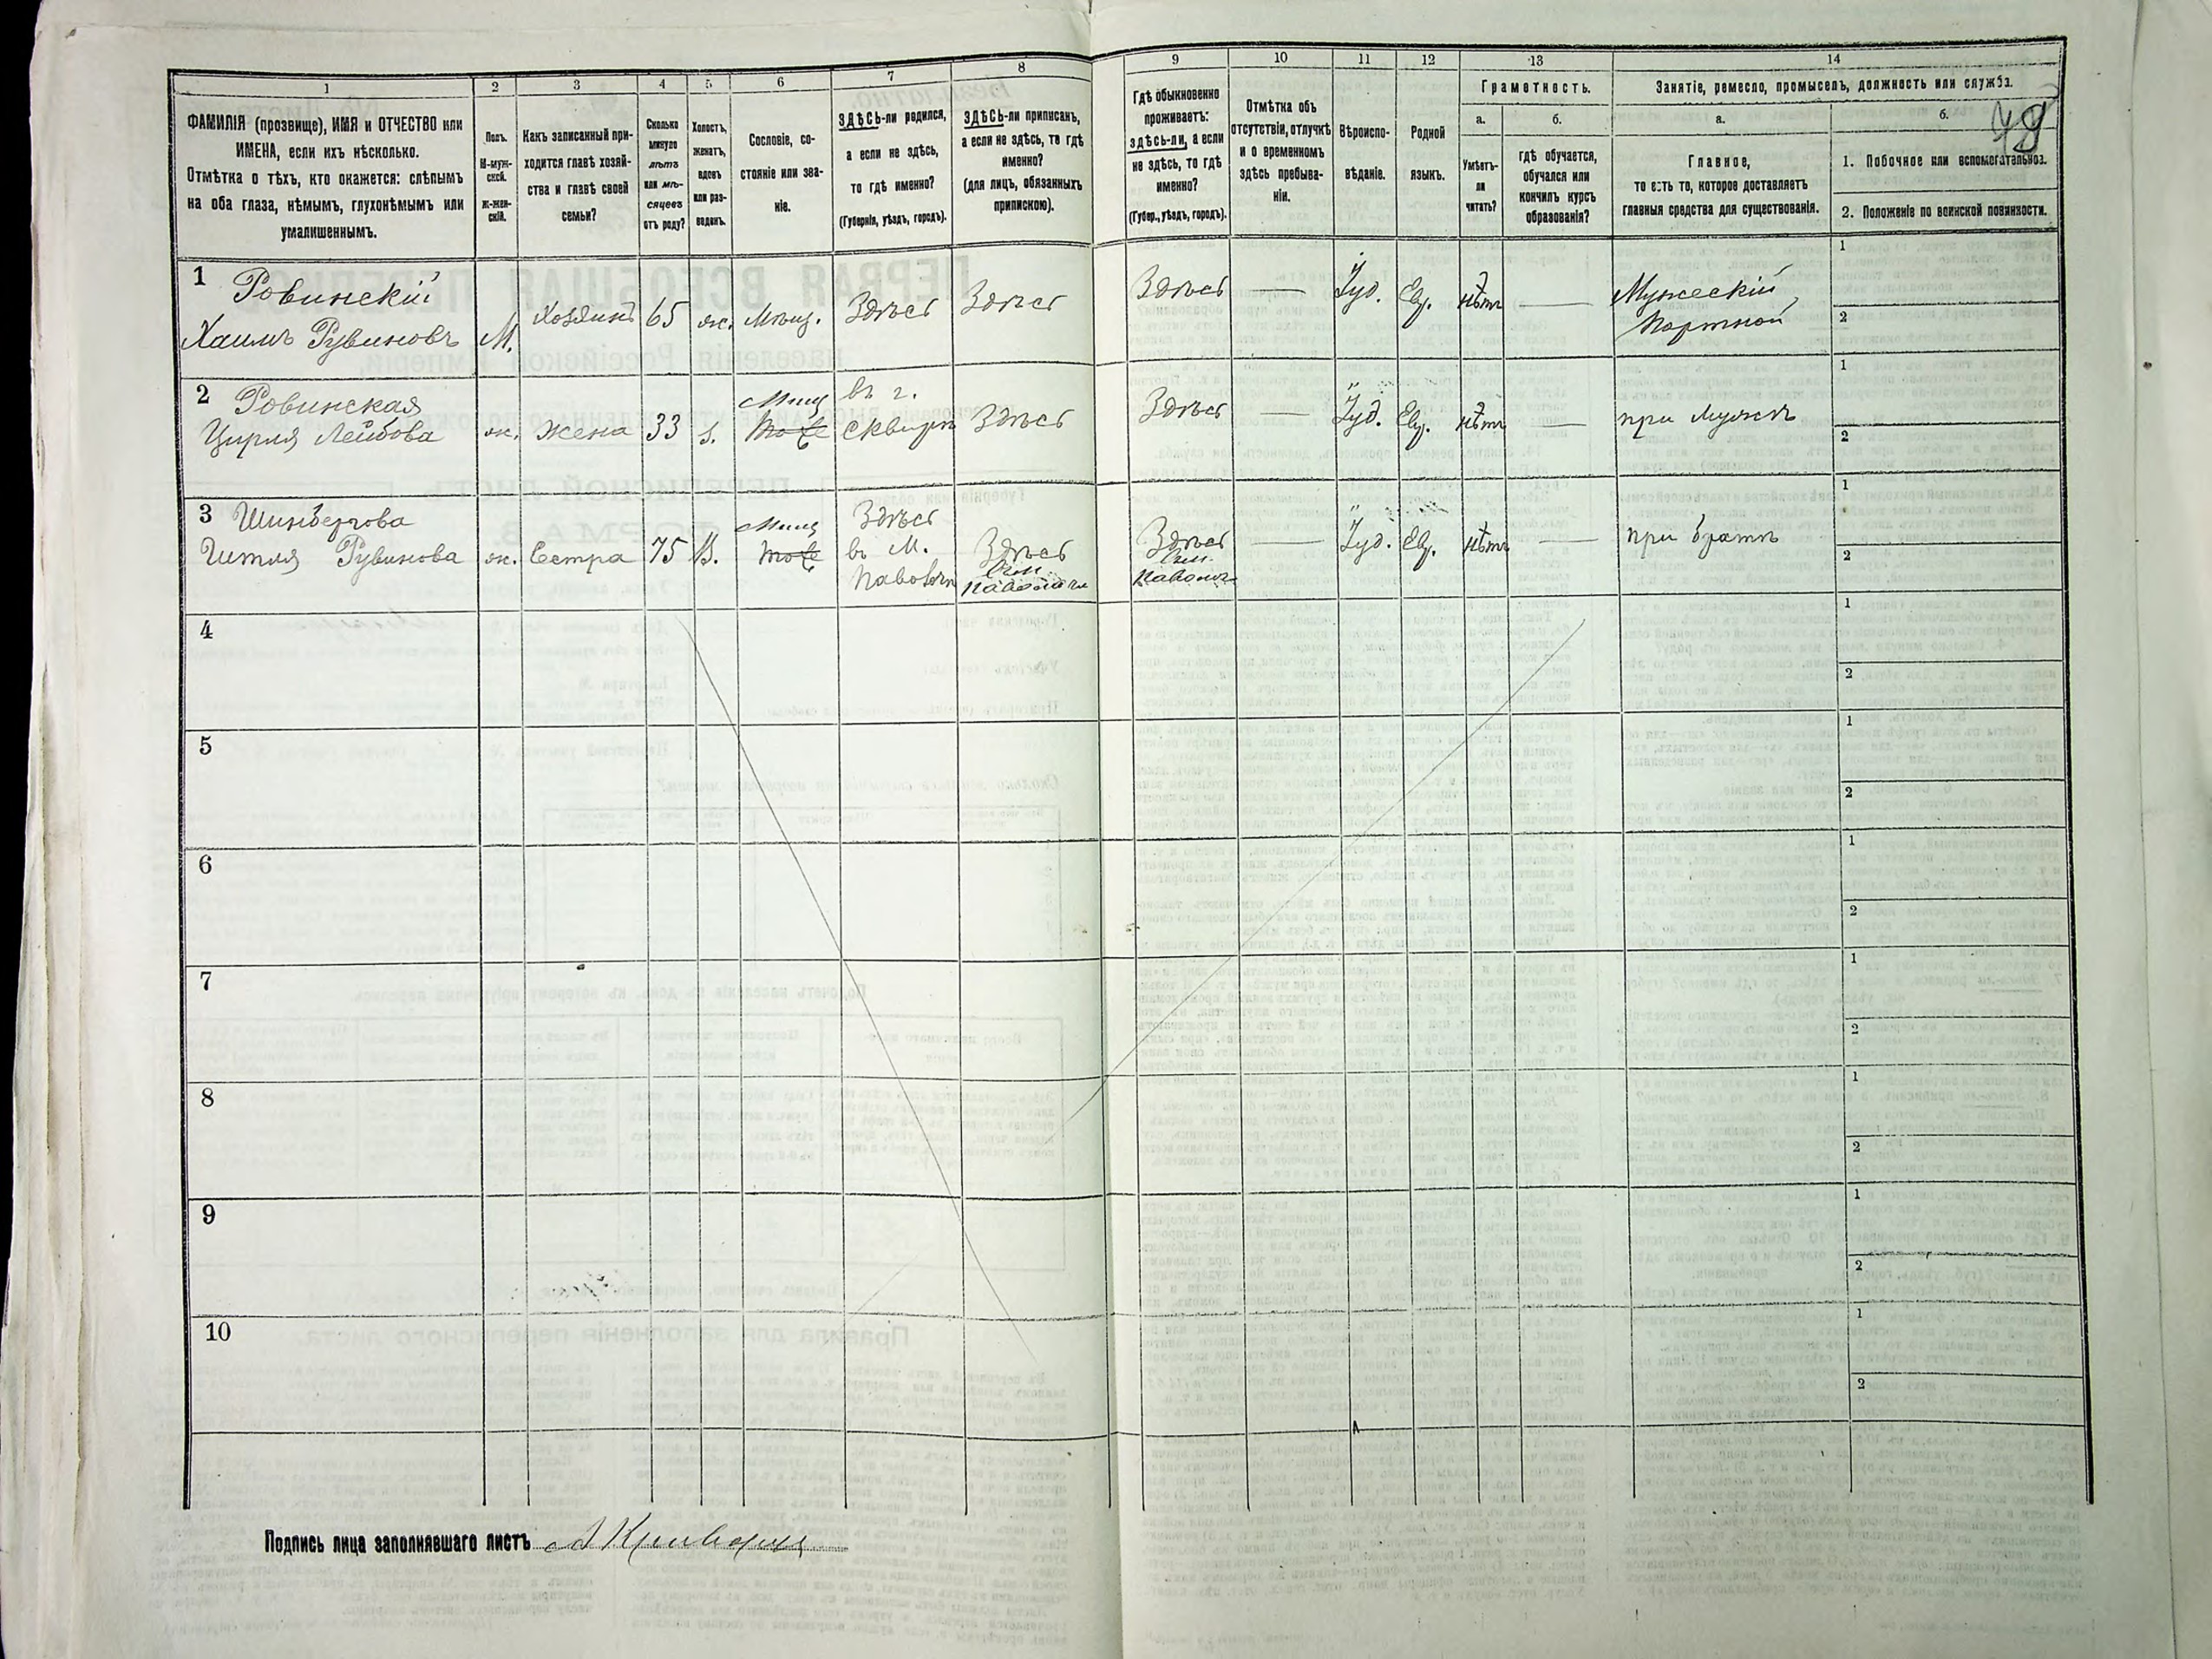 1
2
3
4
5
6
7
8
9
10
11
12
13
14
ФАМИЛІЯ (прозвище), ИМЯ и ОТЧЕСТВО или
ИМЕНА, если ихъ нѣсколько.
Отмѣтка о тѣхъ, кто окажется: слѣпымъ
на оба глаза, нѣмымъ, глухонѣмымъ или
умалишеннымъ.
Полъ.
М-муж-
ской.
Ж-жен-
скій.
Какъ записанный при-
ходится главѣ хозяй-
ства и главѣ своей
семьи?
Сколько
минуло
лѣтъ
или мѣ-
сяцевъ
отъ роду?
Холостъ,
женатъ,
вдовъ
или раз-
веденъ.
Сословіе, со-
стояніе или зва-
ніе.
ЗДѢСЬ-ли родился,
а если не здѣсь,
то гдѣ именно?
(Губернія, уѣздъ, городъ).
ЗДѢСЬ-ли приписанъ,
а если не здѣсь, то гдѣ
именно?
(для лицъ, обязанныхъ
припискою).
Гдѣ обыкновенно
проживаетъ:
здѣсь-ли, а если
не здѣсь, то гдѣ
именно?
(Губер., уѣздъ, городъ).
Отмѣтка объ
отсутствіи, отлучкѣ
и о временномъ
здѣсь пребыва-
ніи.
Вѣроиспо-
вѣданіе.
Родной
языкъ.
Грамотность.
а.
Умѣетъ-
ли
читать?
б.
гдѣ обучается,
обучался или
кончилъ курсъ
образованія?
Занятіе, ремесло, промыселъ, должность или служба.
а.
Главное,
то есть то, которое доставляетъ
главныя средства для существованія.
б.
1. Побочное или вспомогательное.
2. Положеніе по воинской повинности.
1 Ровинскій
Хаимъ Рувиновъ М. Хозяинъ 65 ж. Мѣщ. Здѣсь Здѣсь Здѣсь — Іуд. Евр. нѣтъ — Мужескій
портной
1
2
2 Ровинская
Цирля Лейбова ж. жена 33 з. Мѣщ тоже въ г.
Сквирѣ Здѣсь Здѣсь — Іуд. Евр. нѣтъ — при мужѣ
1
2
3 Шинбергова
Гитля Рувинова ж. Сестра 75 В. Мѣщ тоже Здѣсь
въ м.
Паволочи Здѣсь
Паволочи Здѣсь
Паволочь — Іуд. Евр. нѣтъ — при братѣ
1
2
4
1
2
5
1
2
6
1
2
7
1
2
8
1
2
9
1
2
10
1
2
Подпись лица заполнявшаго листъ